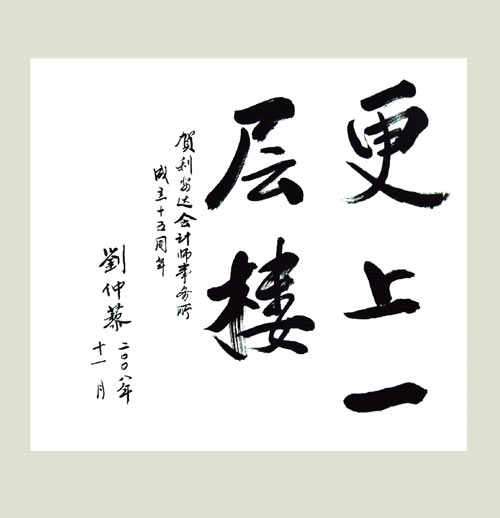 更上一
层楼
贺利安达会计师事务所
成立十五周年
劉仲藜
二〇〇八年
十一月